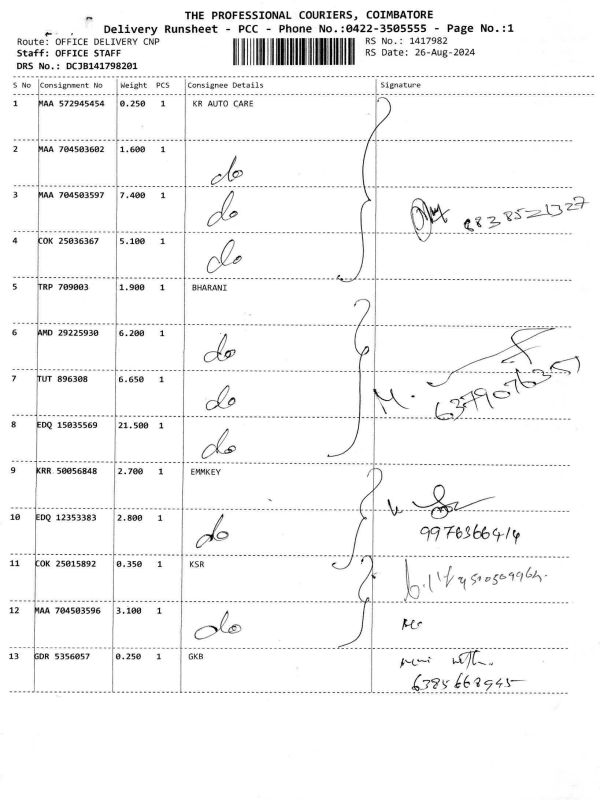 THE PROFESSIONAL COURIERS, COIMBATORE
Delivery Runsheet - PCC - Phone No.:0422-3505555 - Page No.:1
Route: OFFICE DELIVERY CNP RS No.: 1417982
Staff: OFFICE STAFF RS Date: 26-Aug-2024
DRS No.: DCJB141798201
S No Consignment No Weight PCS Consignee Details Signature
1 MAA 572945454 0.250 1 KR AUTO CARE
2 MAA 704503602 1.600 1 do
3 MAA 704503597 7.400 1 do
4 COK 25036367 5.100 1 do
5 TRP 709003 1.900 1 BHARANI
6 AMD 29225930 6.200 1 do
7 TUT 896308 6.650 1 do M. 6379076351
8 EDQ 15035569 21.500 1 do
9 KRR 50056848 2.700 1 EMMKEY
10 EDQ 12353383 2.800 1 do 9976366414
11 COK 25015892 0.350 1 KSR
12 MAA 704503596 3.100 1 do
13 GDR 5356057 0.250 1 GKB
6385668945